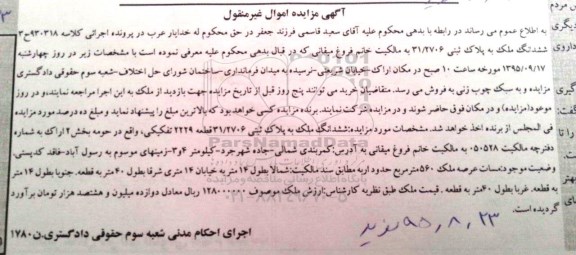 آگهی مزایده اموال غیرمنقول
به اطلاع عموم می رساند در رابطه با بدهی محکوم علیه آقای سعید قاسمی فرزند جعفر در حق محکوم له خدایار عرب در پرونده اجرائی کلاسه ۹۳۰۳۱۸ح۳
ششدانگ ملک به پلاک ثبتی ۳۱/۲۷۰۶ به مالکیت خانم فروغ میقانی که در قبال بدهی محکوم علیه معرفی نموده است با مشخصات زیر در روز چهارشنبه
۱۳۹۵/۰۹/۱۷ مورخه ساعت ۱۰ صبح در مکان اراک خیابان شریعتی-نرسیده به میدان فرمانداری-ساختمان شورای حل اختلاف-شعبه سوم حقوقی دادگستری
مزایده و به سبک چوب زنی به فروش می رسد. متقاضیان خرید می توانند پنج روز قبل از تاریخ مزایده جهت بازدید از ملک به این اجرا مراجعه نمایند،و در روز
موعود(مزایده) و در مکان فوق حاضر شوند و در مزایده شرکت نمایند. برنده مزایده کسی خواهد بود که بالاترین مبلغ را پیشنهاد نماید و مبلغ ده درصد مورد مزایده
فی المجلس از برنده اخذ خواهد شد. مشخصات مورد مزایده:ششدانگ ملک به پلاک ثبتی ۳۱/۲۷۰۶قطعه ۲۲۲۹ تفکیکی، واقع در حومه بخش ۲ اراک به شماره
دفترچه مالکیت ۰۵۰۵۲۸ به مالکیت خانم فروغ میقانی به آدرس:کمربندی شمالی-جاده شهرجرد-کیلومتر ۴و۳-زمینهای موسوم به رسول آباد-فاقد کدپستی.
وضعیت موجود:مساحت عرصه ملک ۵۶۰مترمربع حدود اربعه مطابق سند مالکیت:شمالا بطول ۱۴متر به خیابان ۱۴ متری شرقا بطول ۴۰متر به قطعه. جنوبا بطول ۱۴ متر
به قطعه. غربا بطول ۴۰متر به قطعه . قیمت ملک طبق نظریه کارشناس:ارزش ملک موصوف ۱۲۸۰۰۰۰۰۰ ریال معادل دوازده میلیون و هشتصد هزار تومان برآورد
گردیده است.
اجرای احکام مدنی شعبه سوم حقوقی دادگستری.ن۱۷۸۰